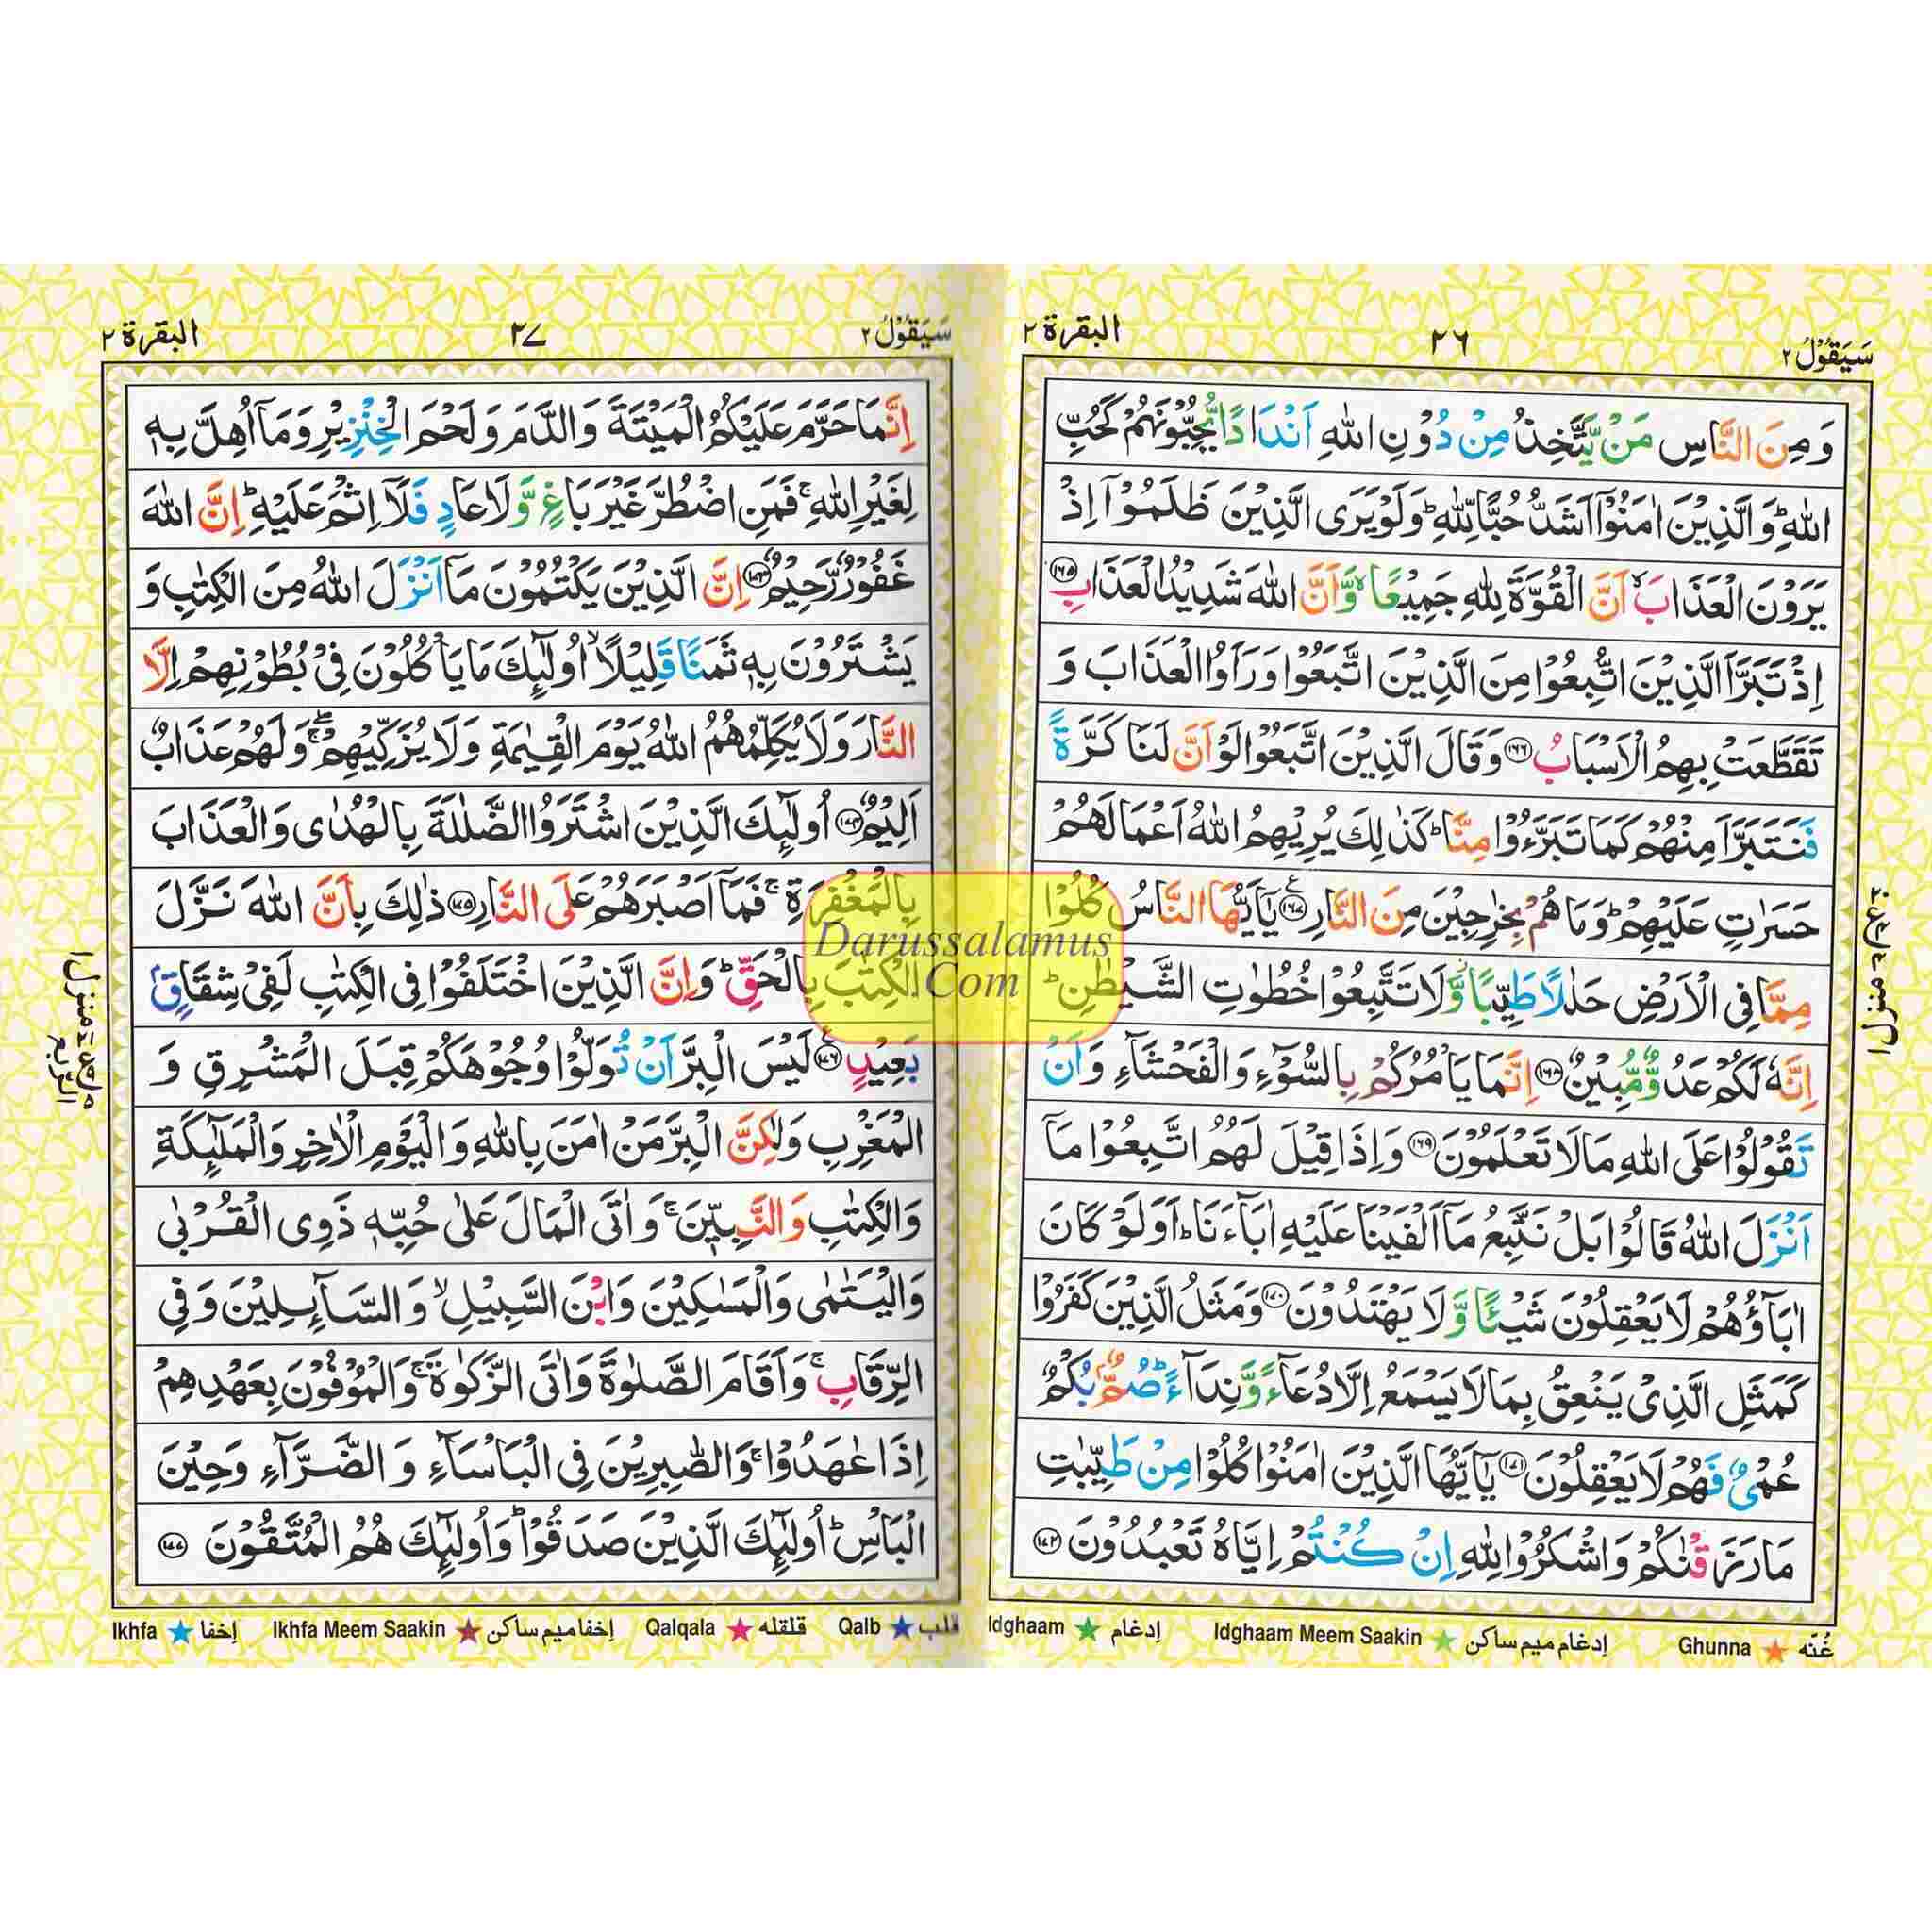 سَيَقُوْلُ ٢
٢٦
البقرة ٢
وَ مِنَ النَّاسِ مَنْ يَّتَّخِذُ مِنْ دُوْنِ اللّٰهِ اَنْدَادًا يُّحِبُّوْنَهُمْ كَحُبِّ
اللّٰهِ ؕ وَ الَّذِيْنَ اٰمَنُوْۤا اَشَدُّ حُبًّا لِّلّٰهِ ؕ وَ لَوْ يَرَى الَّذِيْنَ ظَلَمُوْۤا اِذْ
يَرَوْنَ الْعَذَابَ ۙ اَنَّ الْقُوَّةَ لِلّٰهِ جَمِيْعًا ۙ وَّ اَنَّ اللّٰهَ شَدِيْدُ الْعَذَابِ ﴿١٦٥﴾
اِذْ تَبَرَّاَ الَّذِيْنَ اتُّبِعُوْا مِنَ الَّذِيْنَ اتَّبَعُوْا وَ رَاَوُا الْعَذَابَ وَ
تَقَطَّعَتْ بِهِمُ الْاَسْبَابُ ﴿١٦٦﴾ وَ قَالَ الَّذِيْنَ اتَّبَعُوْا لَوْ اَنَّ لَنَا كَرَّةً
فَنَتَبَرَّاَ مِنْهُمْ كَمَا تَبَرَّءُوْا مِنَّا ؕ كَذٰلِكَ يُرِيْهِمُ اللّٰهُ اَعْمَالَهُمْ
حَسَرٰتٍ عَلَيْهِمْ ؕ وَ مَا هُمْ بِخٰرِجِيْنَ مِنَ النَّارِ ﴿١٦٧﴾ يٰۤاَيُّهَا النَّاسُ كُلُوْا
مِمَّا فِى الْاَرْضِ حَلٰلًا طَيِّبًا وَّ لَا تَتَّبِعُوْا خُطُوٰتِ الشَّيْطٰنِ ؕ
اِنَّهٗ لَكُمْ عَدُوٌّ مُّبِيْنٌ ﴿١٦٨﴾ اِنَّمَا يَاْمُرُكُمْ بِالسُّوْٓءِ وَ الْفَحْشَآءِ وَ اَنْ
تَقُوْلُوْا عَلَى اللّٰهِ مَا لَا تَعْلَمُوْنَ ﴿١٦٩﴾ وَ اِذَا قِيْلَ لَهُمُ اتَّبِعُوْا مَاۤ
اَنْزَلَ اللّٰهُ قَالُوْا بَلْ نَتَّبِعُ مَاۤ اَلْفَيْنَا عَلَيْهِ اٰبَآءَنَا ؕ اَوَلَوْ كَانَ
اٰبَآؤُهُمْ لَا يَعْقِلُوْنَ شَيْـًٔا وَّ لَا يَهْتَدُوْنَ ﴿١٧٠﴾ وَ مَثَلُ الَّذِيْنَ كَفَرُوْا
كَمَثَلِ الَّذِىْ يَنْعِقُ بِمَا لَا يَسْمَعُ اِلَّا دُعَآءً وَّ نِدَآءً ؕ صُمٌّۢ بُكْمٌ
عُمْىٌ فَهُمْ لَا يَعْقِلُوْنَ ﴿١٧١﴾ يٰۤاَيُّهَا الَّذِيْنَ اٰمَنُوْا كُلُوْا مِنْ طَيِّبٰتِ
مَا رَزَقْنٰكُمْ وَ اشْكُرُوْا لِلّٰهِ اِنْ كُنْتُمْ اِيَّاهُ تَعْبُدُوْنَ ﴿١٧٢﴾
غُنّه ★ Ghunna
إدغام ميم ساكن ★ Idghaam Meem Saakin
إدغام ★ Idghaam
سَيَقُوْلُ ٢
٢٧
البقرة ٢
اِنَّمَا حَرَّمَ عَلَيْكُمُ الْمَيْتَةَ وَ الدَّمَ وَ لَحْمَ الْخِنْزِيْرِ وَ مَاۤ اُهِلَّ بِهٖ
لِغَيْرِ اللّٰهِ ۚ فَمَنِ اضْطُرَّ غَيْرَ بَاغٍ وَّ لَا عَادٍ فَلَاۤ اِثْمَ عَلَيْهِ ؕ اِنَّ اللّٰهَ
غَفُوْرٌ رَّحِيْمٌ ﴿١٧٣﴾ اِنَّ الَّذِيْنَ يَكْتُمُوْنَ مَاۤ اَنْزَلَ اللّٰهُ مِنَ الْكِتٰبِ وَ
يَشْتَرُوْنَ بِهٖ ثَمَنًا قَلِيْلًا ۙ اُولٰٓئِكَ مَا يَاْكُلُوْنَ فِىْ بُطُوْنِهِمْ اِلَّا
النَّارَ وَ لَا يُكَلِّمُهُمُ اللّٰهُ يَوْمَ الْقِيٰمَةِ وَ لَا يُزَكِّيْهِمْ ۖۚ وَ لَهُمْ عَذَابٌ
اَلِيْمٌ ﴿١٧٤﴾ اُولٰٓئِكَ الَّذِيْنَ اشْتَرَوُا الضَّلٰلَةَ بِالْهُدٰى وَ الْعَذَابَ
بِالْمَغْفِرَةِ ۚ فَمَاۤ اَصْبَرَهُمْ عَلَى النَّارِ ﴿١٧٥﴾ ذٰلِكَ بِاَنَّ اللّٰهَ نَزَّلَ
الْكِتٰبَ بِالْحَقِّ ؕ وَ اِنَّ الَّذِيْنَ اخْتَلَفُوْا فِى الْكِتٰبِ لَفِىْ شِقَاقٍۭ
بَعِيْدٍ ﴿١٧٦﴾ لَيْسَ الْبِرَّ اَنْ تُوَلُّوْا وُجُوْهَكُمْ قِبَلَ الْمَشْرِقِ وَ
الْمَغْرِبِ وَ لٰكِنَّ الْبِرَّ مَنْ اٰمَنَ بِاللّٰهِ وَ الْيَوْمِ الْاٰخِرِ وَ الْمَلٰٓئِكَةِ
وَ الْكِتٰبِ وَ النَّبِيّٖنَ ۚ وَ اٰتَى الْمَالَ عَلٰى حُبِّهٖ ذَوِى الْقُرْبٰى
وَ الْيَتٰمٰى وَ الْمَسٰكِيْنَ وَ ابْنَ السَّبِيْلِ ۙ وَ السَّآئِلِيْنَ وَ فِى
الرِّقَابِ ۚ وَ اَقَامَ الصَّلٰوةَ وَ اٰتَى الزَّكٰوةَ ۚ وَ الْمُوْفُوْنَ بِعَهْدِهِمْ
اِذَا عٰهَدُوْا ۚ وَ الصّٰبِرِيْنَ فِى الْبَاْسَآءِ وَ الضَّرَّآءِ وَ حِيْنَ
الْبَاْسِ ؕ اُولٰٓئِكَ الَّذِيْنَ صَدَقُوْا ؕ وَ اُولٰٓئِكَ هُمُ الْمُتَّقُوْنَ ﴿١٧٧﴾
قلب ★ Qalb
قلقله ★ Qalqala
إخفا ميم ساكن ★ Ikhfa Meem Saakin
إخفا ★ Ikhfa
Darussalamus
.Com